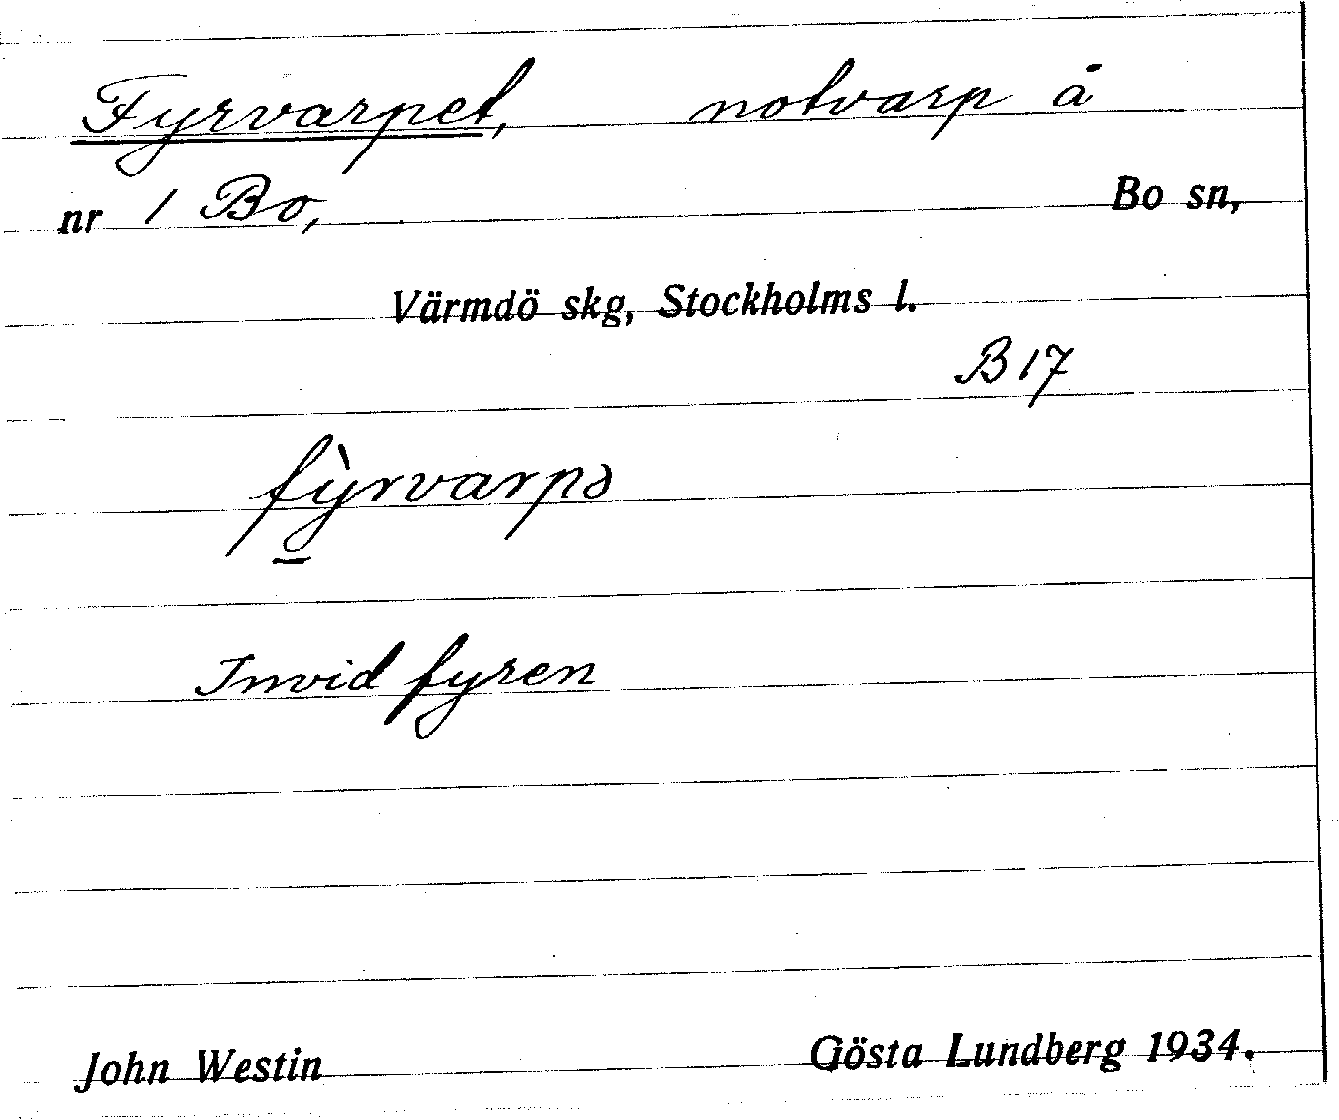 Fyrvarpet, notvarp å
nr 1 Bo, Bo sn,
Värmdö skg, Stockholms l.
B 17
fỳ̠rvarpə
Invid fyren
John Westin Gösta Lundberg 1934.